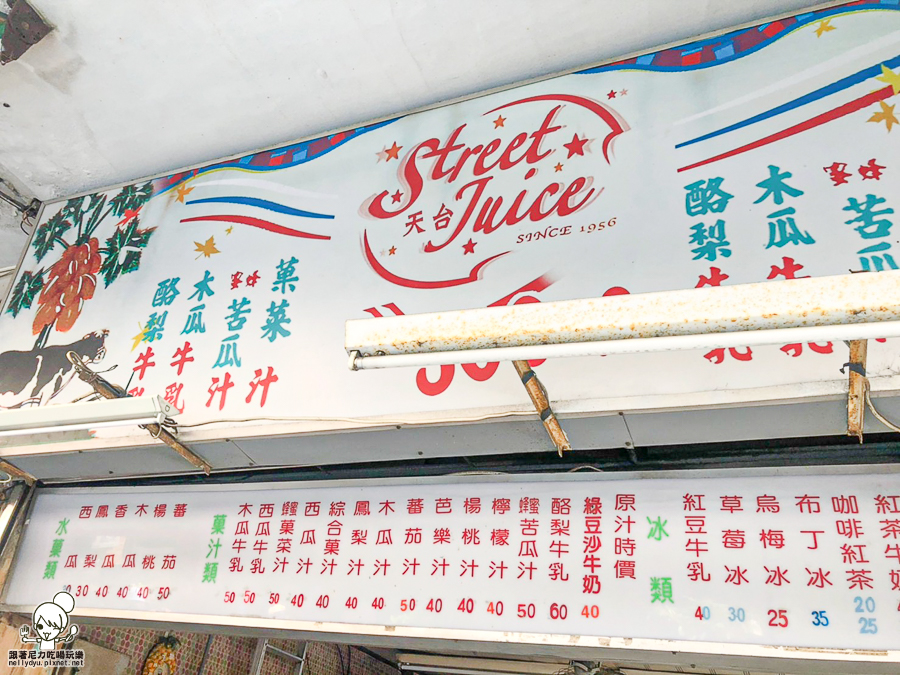 Street
Juice
天台
SINCE 1956
酪梨牛乳
木瓜牛乳
蜂蜜苦瓜汁
菓菜汁
酪梨牛乳
木瓜牛乳
蜂蜜苦瓜
水菓類
西瓜
鳳梨 30
香瓜 40
木瓜 40
楊桃 40
蕃茄 50
菓汁類
木瓜牛乳 50
西瓜牛乳 50
蜂蜜菓菜汁 50
西瓜汁 40
綜合菓汁 40
鳳梨汁 40
木瓜汁 40
蕃茄汁 50
芭樂汁 40
楊桃汁 40
檸檬汁 40
蜂蜜苦瓜汁 50
酪梨牛乳 60
綠豆沙牛奶 40
原汁時價
冰類
紅豆牛乳 40
草莓冰 30
烏梅冰 25
布丁冰 35
咖啡紅茶 20 25
紅茶牛奶
跟著尼力吃喝玩樂
nellydyu.pixnet.net